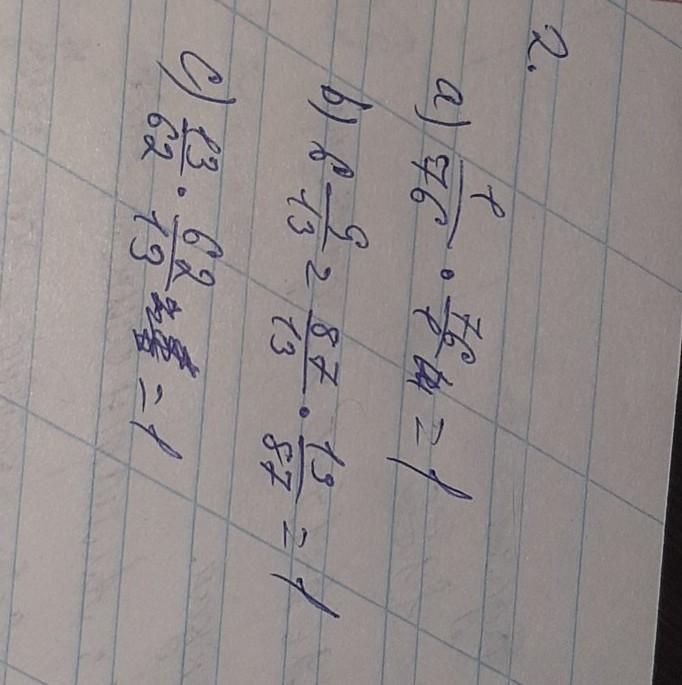 2.
a) 1/76 · 76/1 = 1
b) 6 9/13 = 87/13 · 13/87 = 1
c) 13/62 · 62/13 = 1